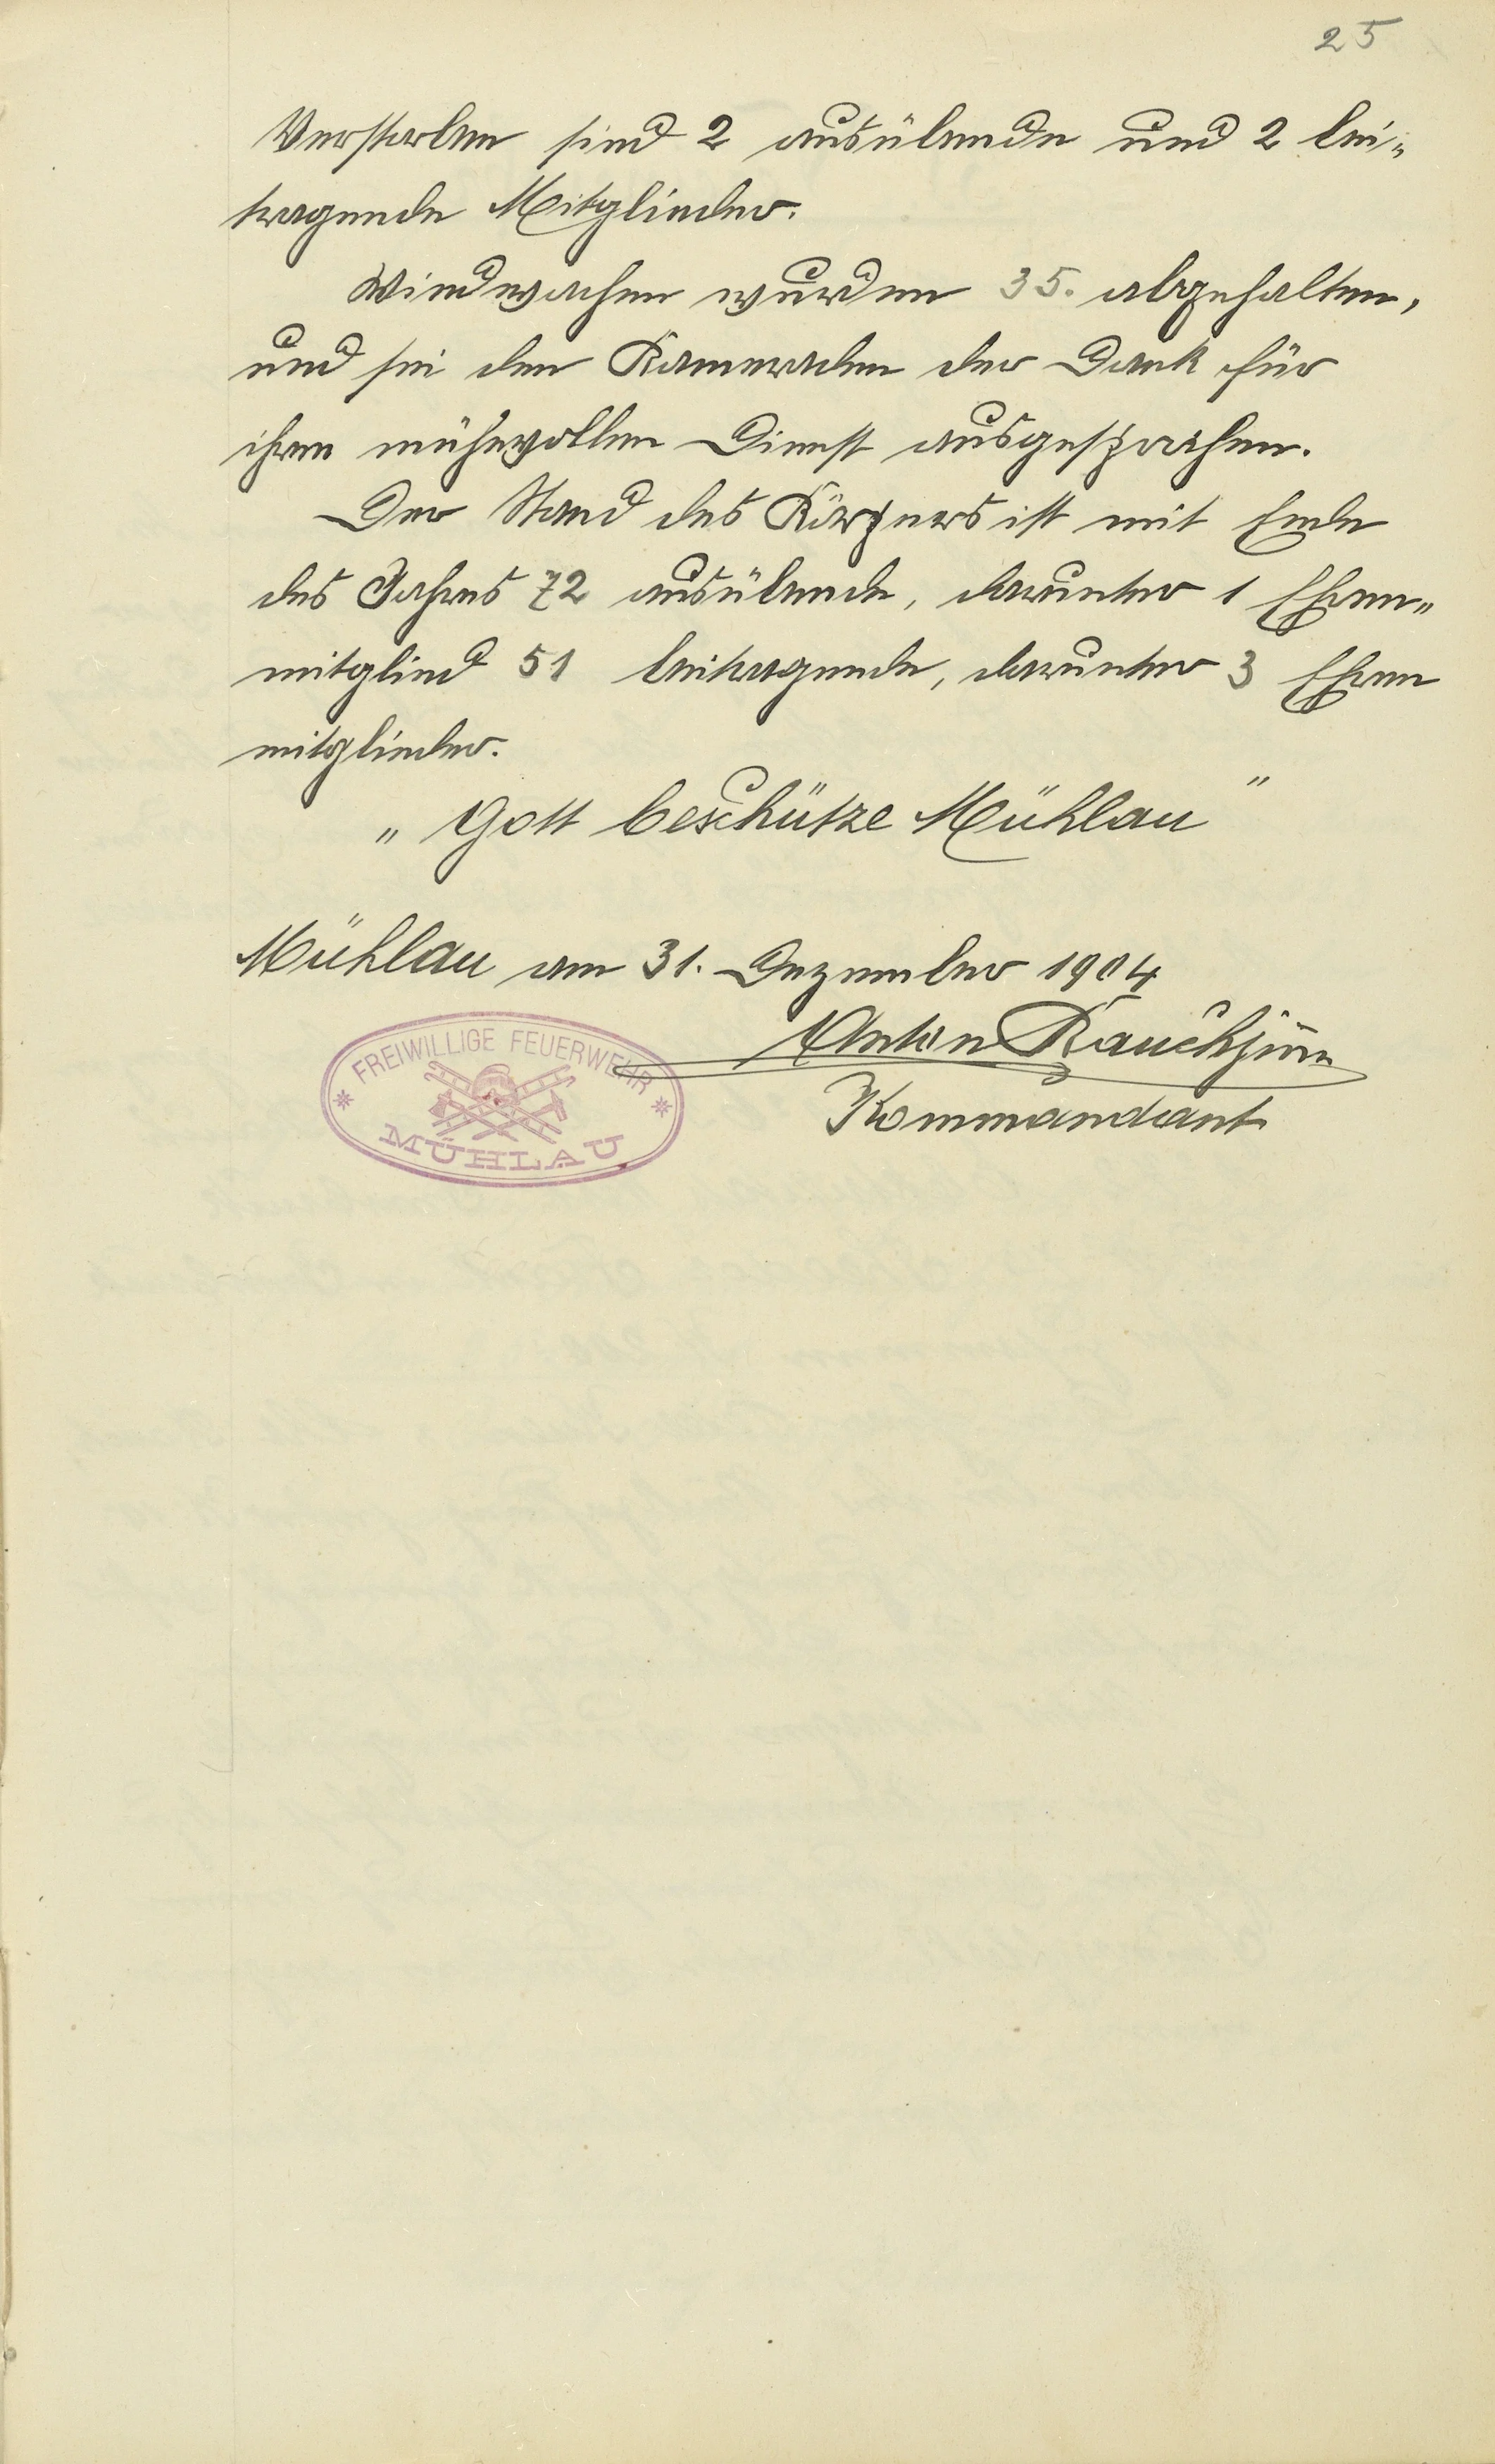 25
Verstorben sind 2 ausübende und 2 bei-
tragende Mitglieder.
Windwachen wurden 35. abgehalten,
und sei den Kameraden der Dank für
ihren mühevollen Dienst ausgesprochen.
Der Stand des Körpers ist mit Ende
des Jahres 72 ausübende, darunter 1 Ehren-
mitglied 51 beitragende, darunter 3 Ehren
mitglieder.
„ Gott beschütze Mühlau "
Mühlau am 31. Dezember 1904
Anton Rauch jun
Kommandant
FREIWILLIGE FEUERWEHR
MÜHLAU